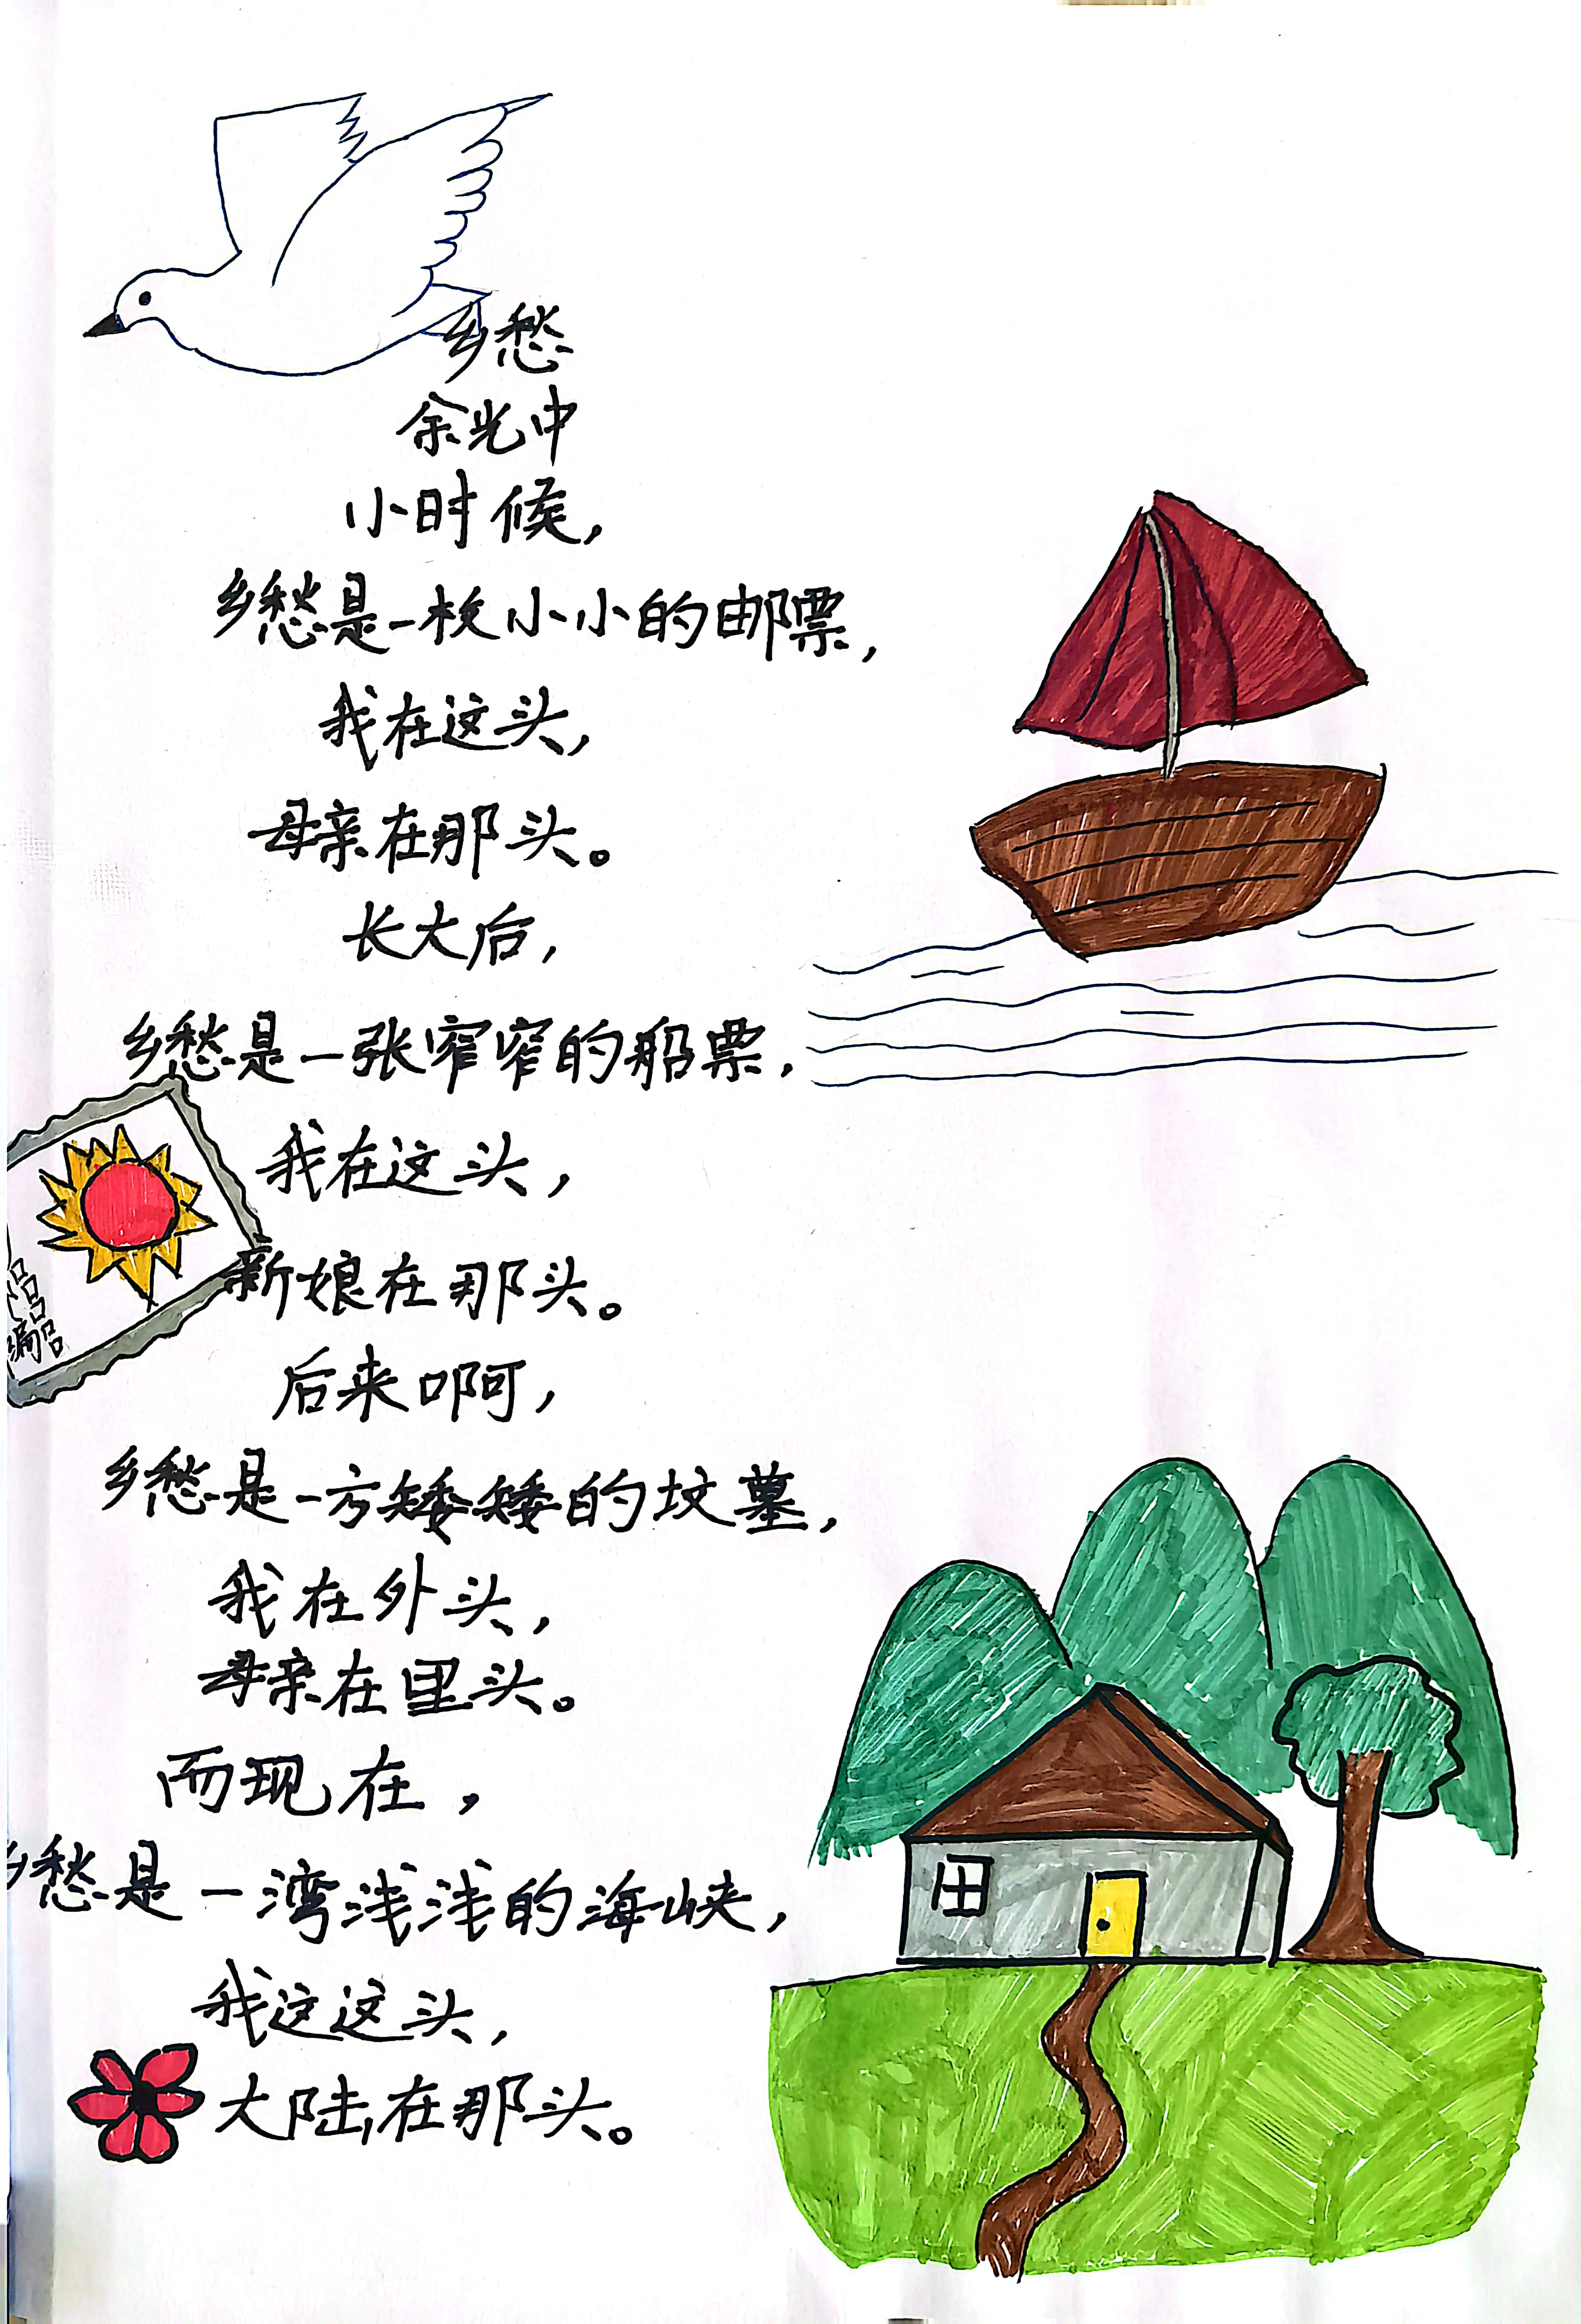 乡愁
余光中
小时候，
乡愁是一枚小小的邮票，
我在这头，
母亲在那头。
长大后，
乡愁是一张窄窄的船票，
我在这头，
新娘在那头。
后来啊，
乡愁是一方矮矮的坟墓，
我在外头，
母亲在里头。
而现在，
乡愁是一湾浅浅的海峡，
我这这头，
大陆在那头。